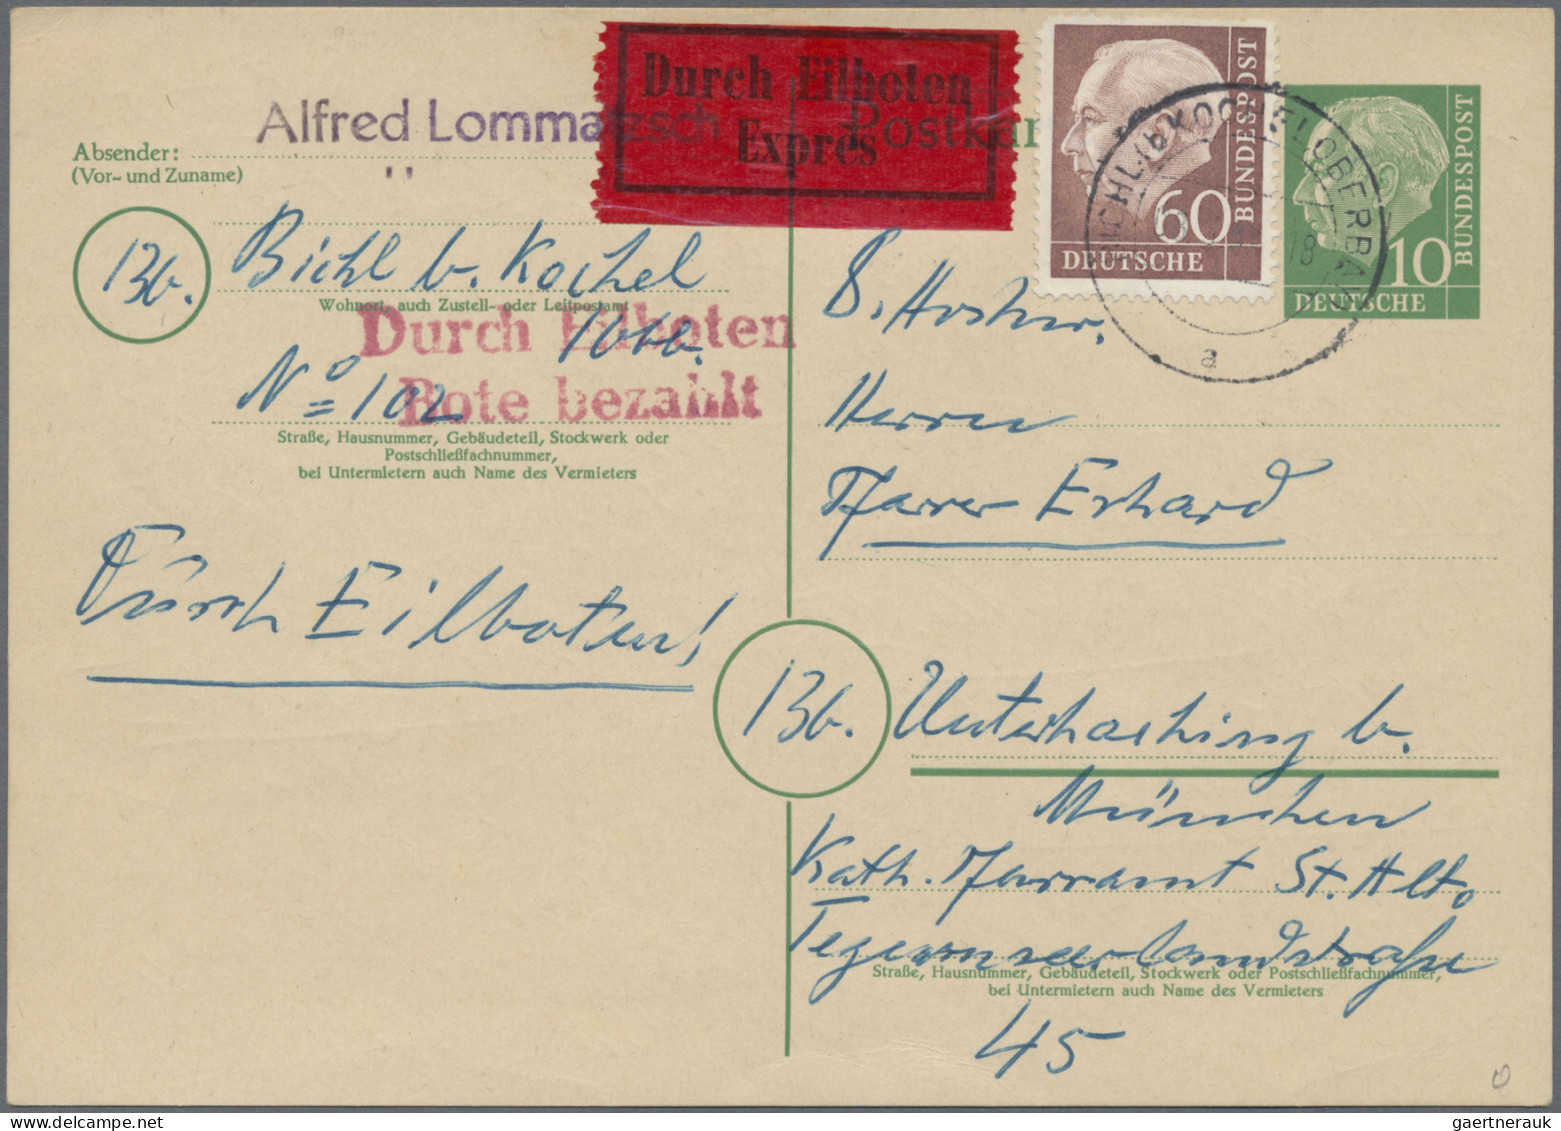 Durch Eilboten
Expres
Postkar
Alfred Lommatzsch
Absender:
(Vor- und Zuname)
13b.
Bichl b. Kochel
Wohnort, auch Zustell- oder Leitpostamt
Obb.
Durch Eilboten
Bote bezahlt
No 102
Straße, Hausnummer, Gebäudeteil, Stockwerk oder
Postschließfachnummer,
bei Untermietern auch Name des Vermieters
Durch Eilboten!
60
DEUTSCHE
BUNDESPOST
10
DEUTSCHE
BUNDESPOST
18
a
Herrn
Pfarrer Erhard
13b. Unterhaching b.
München
Kath. Pfarramt St. Alto
Tegernseerlandstraße
Straße, Hausnummer, Gebäudeteil, Stockwerk oder Postschließfachnummer,
bei Untermietern auch Name des Vermieters
45
gaertnerauk